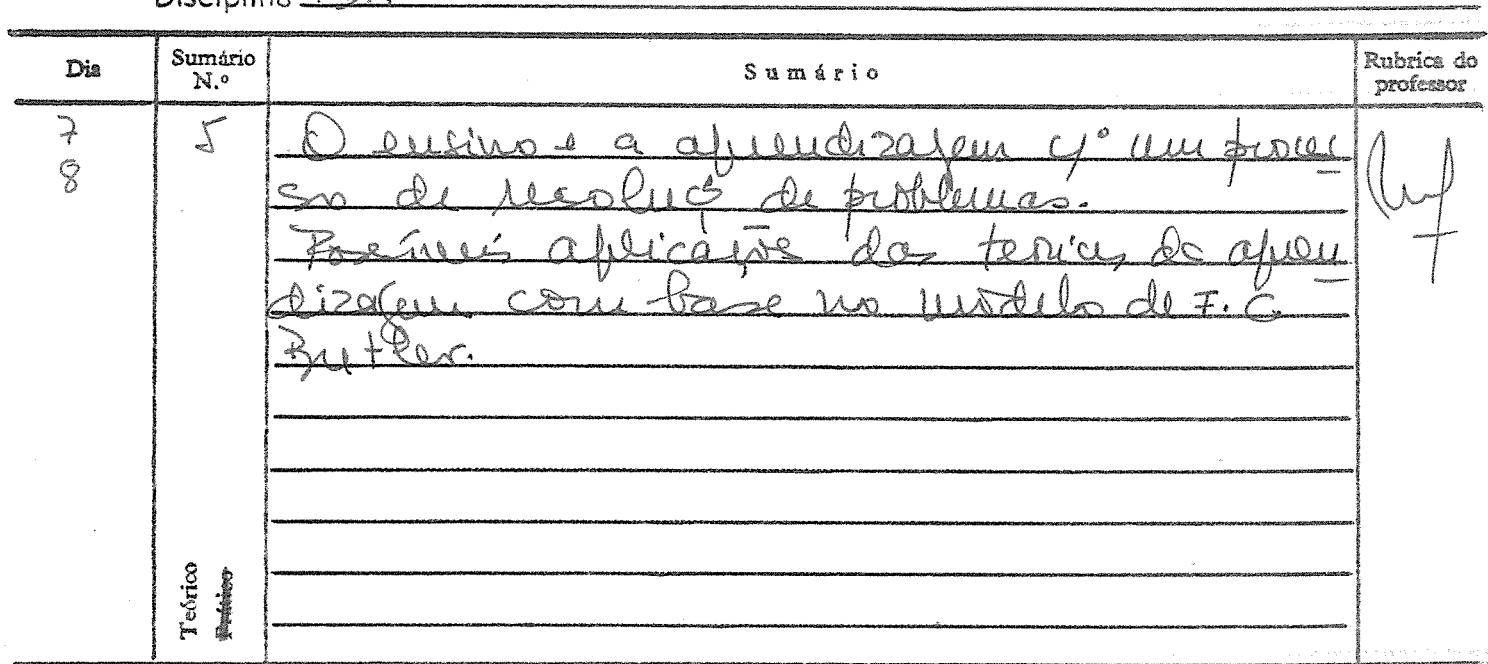 Disciplina
Dia Sumário N.º Sumário Rubrica do professor
7 8 5
O ensino e a aprendizagem cº um proces
so de resoluçº de problemas.
Possíveis aplicações das teorias da apren
dizagem com base no modelo de F. C.
Butler.
Teórico